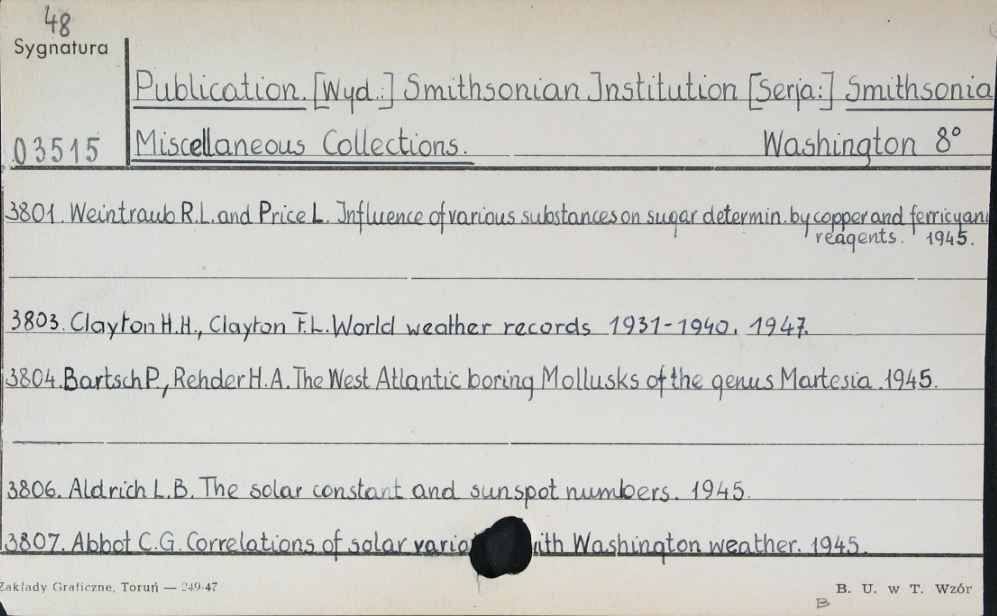 48
Sygnatura
Publication. [Wyd.:] Smithsonian Institution [Serja:] Smithsonia
03515 Miscellaneous Collections. Washington 8°
3801. Weintraub R.L. and Price L. Influence of various substances on sugar determin. by copper and ferricyan
reagents. 1945.
3803. Clayton H.H., Clayton F.L. World weather records 1931-1940. 1947.
3804. Bartsch P., Rehder H.A. The West Atlantic boring Mollusks of the genus Martesia. 1945.
3806. Aldrich L.B. The solar constant and sunspot numbers. 1945.
3807. Abbot C.G. Correlations of solar varia ith Washington weather. 1945.
Zakłady Graficzne, Toruń — 249-47 B. U. w T. Wzór
B